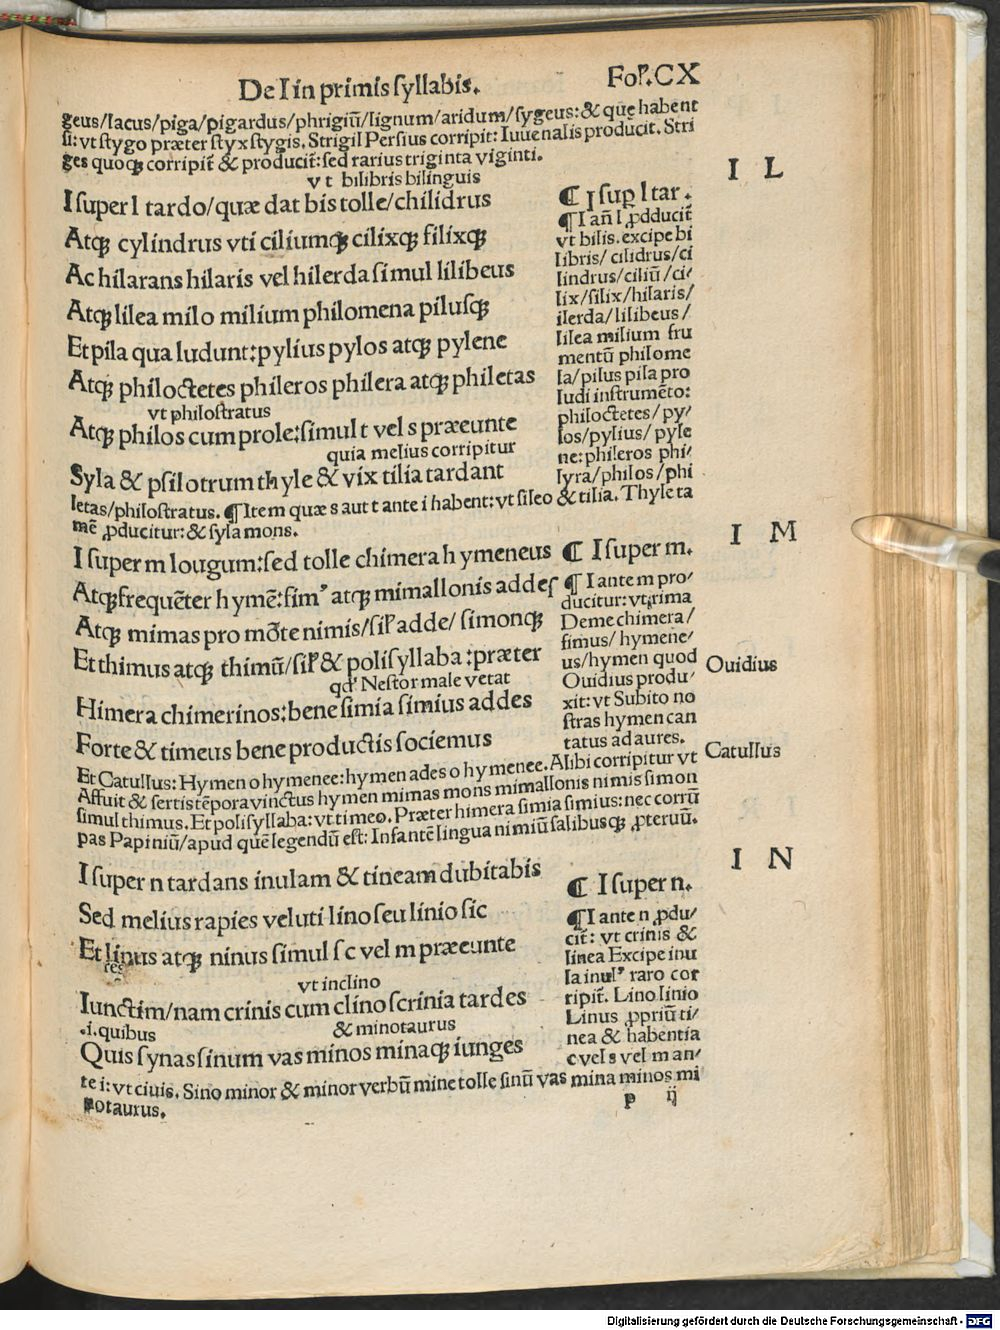 De I in primis syllabis. Fol'. CX
geus/lacus/piga/pigardus/phrigiũ/lignum/aridum/sygeus: & quę habent
si: vt stygo præter styx stygis. Strigil Persius corripit: Iuuenalis producit. Stri
ges quoqꝫ corripit̃ & producit̃: sed rarius triginta viginti.
I L
vt bilibris bilinguis
I super l tardo/quæ dat bis tolle/chilidrus
Atqꝫ cylindrus vti ciliumqꝫ cilixqꝫ filixqꝫ
Ac hilarans hilaris vel hilerda simul lilibeus
Atqꝫ lilea milo milium philomena pilusqꝫ
Et pila qua ludunt: pylius pylos atqꝫ pylene
Atqꝫ philoctetes phileros philera atqꝫ philetas
vt philostratus
Atqꝫ philos cum prole: simul t vel s præeunte
quia melius corripitur
Syla & psilotrum thyle & vix tilia tardant
¶ I suꝑ l tar.
¶ I añ l ꝓdducit̃
vt bilis. excipe bi
libris/ cilidrus/ci
lindrus/ciliũ/ci/
lix/filix/hilaris/
ilerda/lilibeus/
lilea milium fru
mentũ philome
la/pilus pila pro
ludi instrumẽto:
philoctetes/py/
los/pylius/pyle
ne: phileros phi/
lyra/philos/phi
letas/philostratus. ¶ Item quæ s aut t ante i habent: vt sileo & tilia. Thyle ta
mẽ ꝓducitur: & syla mons.
I M
I super m lougum: sed tolle chimera hymeneus
Atqꝫ frequẽter hymẽ: simꝰ atqꝫ mimallonis addes
Atqꝫ mimas pro mõte nimis/sil' adde/ simonqꝫ
Et thimus atqꝫ thimũ/sil' & polisyllaba: præter
qđ Nestor male vetat
Himera chimerinos: bene simia simius addes
Forte & timeus bene productis sociemus
¶ I super m.
¶ I ante m pro/
ducitur: vt rima
Deme chimera/
simus/ hymene/
us/hymen quod
Ouidius produ/
xit: vt Subito no
stras hymen can
tatus ad aures.
Ouidius
Catullus
Et Catullus: Hymen o hymenee: hymen ades o hymenee. Alibi corripitur vt
Affuit & sertis tẽpora vinctus hymen mimas mons mimallonis nimis simon
simul thimus. Et polisyllaba: vt timeo. Præter himera simia simius: nec corrũ
pas Papiniũ/apud quẽ legendũ est: Infantẽ lingua nimiũ salibusqꝫ ꝓteruũ.
I N
I super n tardans inulam & tineam dubitabis
Sed melius rapies veluti lino seu linio sic
Et linus atqꝫ ninus simul s c vel m præeunte
res
vt inclino
Iunctim/nam crinis cum clino scrinia tardes
.i. quibus & minotaurus
Quis synas sinum vas minos minaqꝫ iunges
¶ I super n.
¶ I ante n ꝓdu/
cit̃: vt crinis &
linea Excipe inu
la inulꝰ raro cor
ripit̃. Lino linio
Linus ꝓpriũ ti/
nea & habentia
c vel s vel m an/
te i: vt ciuis. Sino minor & minor verbũ mine tolle sinũ vas mina minos mi
notaurus.
p ij
Digitalisierung gefördert durch die Deutsche Forschungsgemeinschaft - DFG